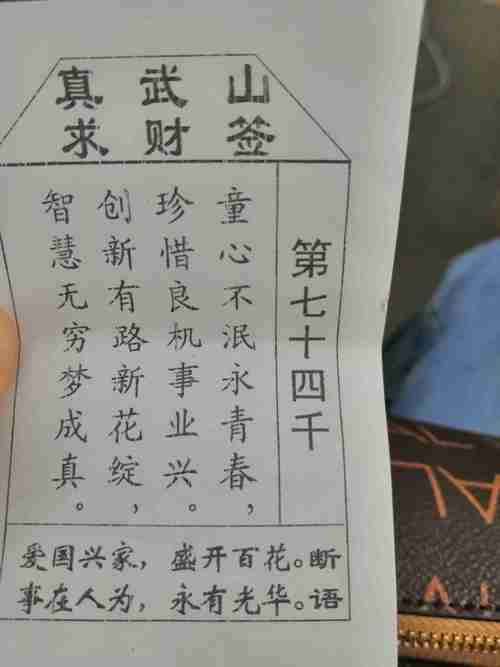 真武山
求财签
第七十四千
童心不泯永青春，
珍惜良机事业兴。
创新有路新花绽，
智慧无穷梦成真。
断语
爱国兴家，盛开百花。
事在人为，永有光华。
AL